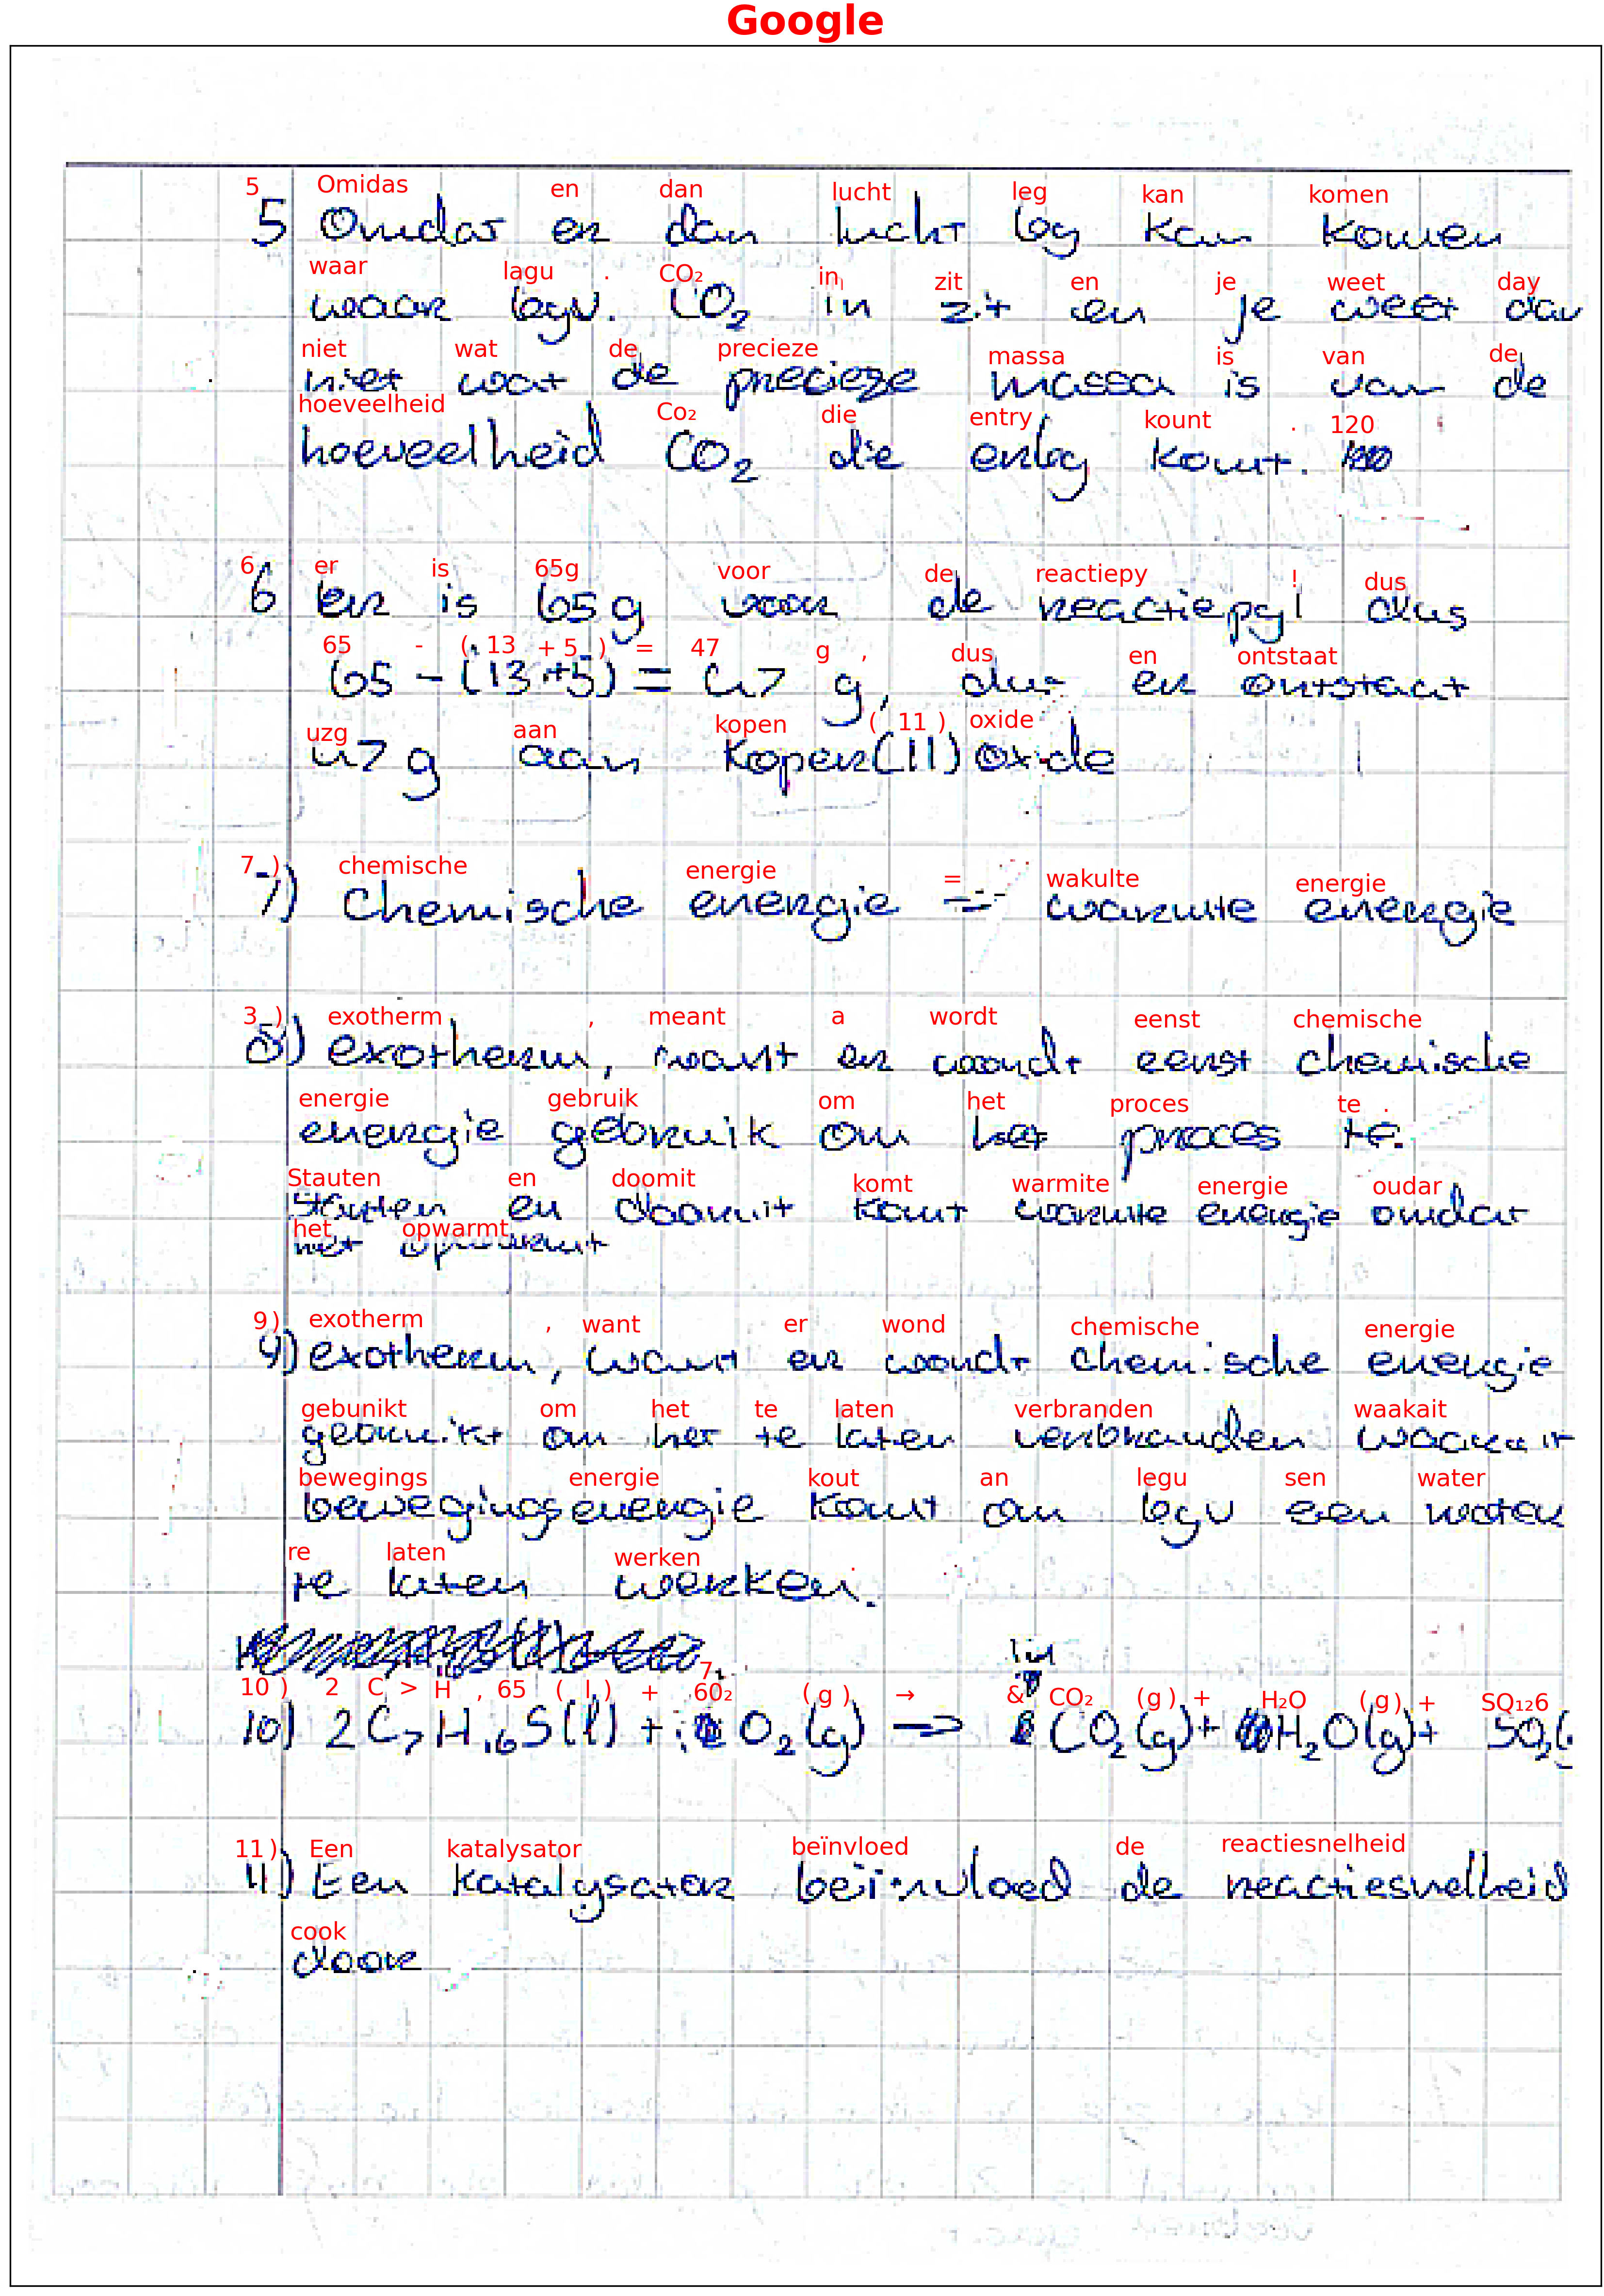 Google
5 Omidas en dan lucht leg kan komen
5 Omdat er dan lucht bij kan komen
waar lagu . CO₂ in zit en je weet day
waar bijv. CO₂ in zit en je weet dan
niet wat de precieze massa is van de
niet wat de precieze massa is van de
hoeveelheid Co₂ die entry kount . 120
hoeveelheid CO₂ die erbij komt.
6 er is 65g voor de reactiepy ! dus
6 Er is 65 g voor de reactiepijl dus
65 - ( 13 + 5 ) = 47 g , dus en ontstaat
65 - (13+5) = 47 g, dus er ontstaat
uzg aan kopen ( 11 ) oxide
47 g aan koper(II)oxide
7 ) chemische energie = wakulte energie
7) Chemische energie => warmte energie
3 ) exotherm , meant a wordt eenst chemische
8) exotherm, want er wordt eerst chemische
energie gebruik om het proces te .
energie gebruik om het proces te
Stauten en doomit komt warmite energie oudar
starten en daaruit komt warmte energie omdat
het opwarmt
het opwarmt
9 ) exotherm , want er wond chemische energie
9) exotherm, want er wordt chemische energie
gebunikt om het te laten verbranden waakait
gebruikt om het te laten verbranden waaruit
bewegings energie kout an legu sen water
bewegingsenergie komt om bijv een motor
re laten werken .
te laten werken.
10 ) 2 C > H , 65 ( l ) + 60₂ ( g ) → & CO₂ ( g ) + H₂O ( g ) + SQ₁₂6
10) 2 C₇H₁₆S(l) + O₂(g) → CO₂(g) + H₂O(g) + SO₂(
11 ) Een katalysator beïnvloed de reactiesnelheid
11) Een katalysator beïnvloed de reactiesnelheid
cook
door